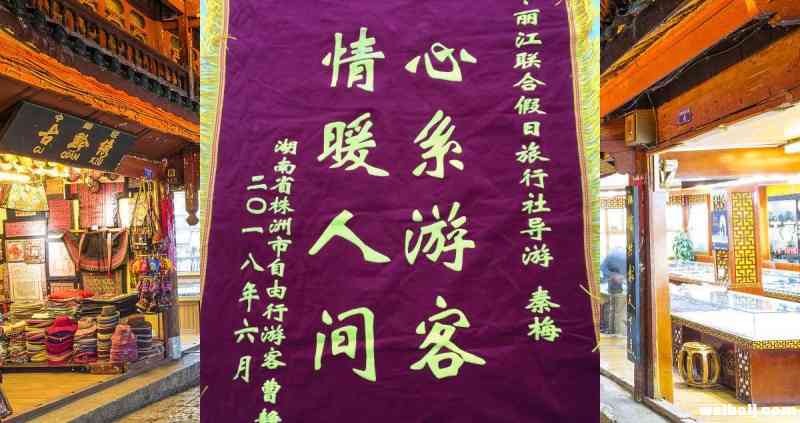 丽江联合假日旅行社导游 秦梅
心系游客
情暖人间
湖南省株洲市自由行游客 曹静
二〇一八年六月
weibaij.com